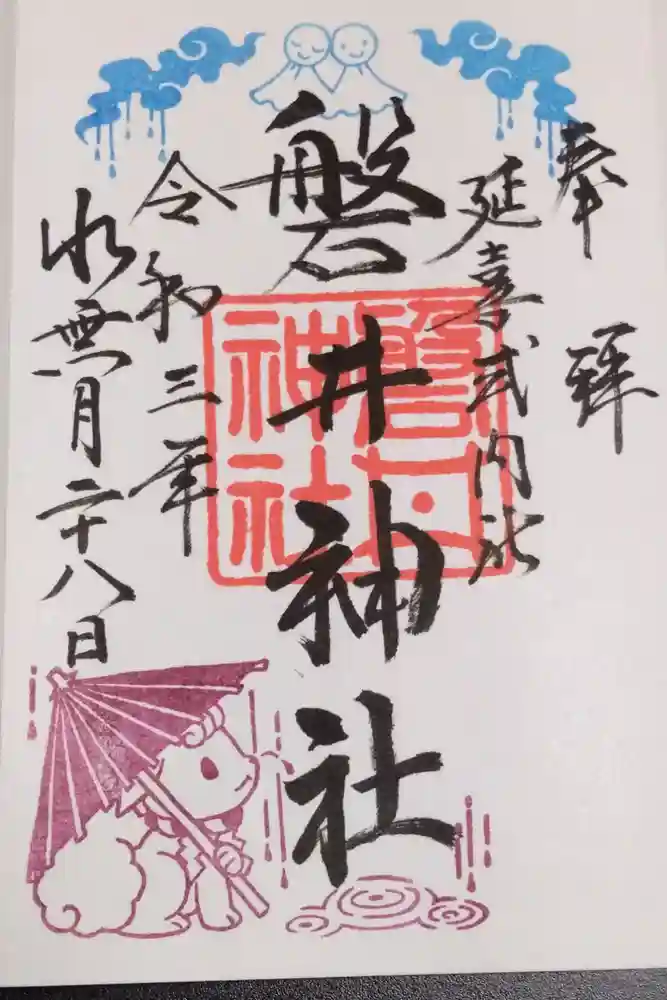 奉拝
延喜式内社
磐井神社
磐井神社
令和三年
水無月二十八日